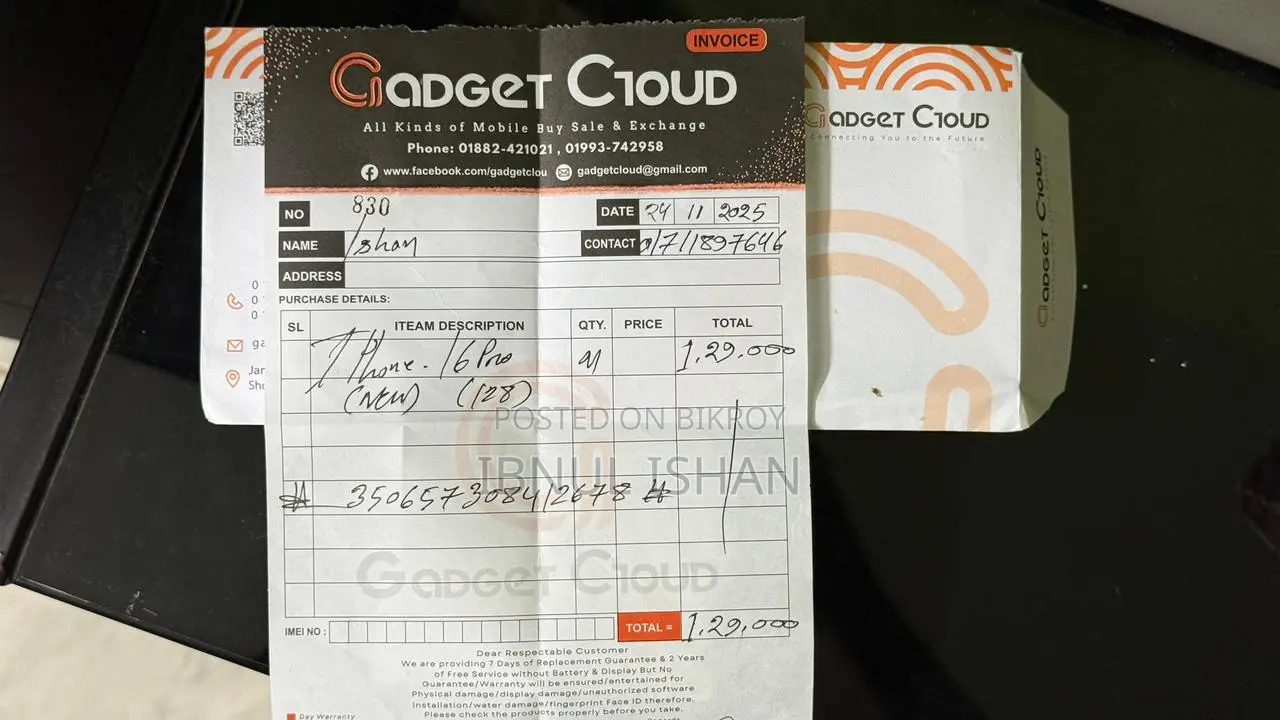 INVOICE
GADGET CLOUD
All Kinds of Mobile Buy Sale & Exchange
Phone: 01882-421021 , 01993-742958
www.facebook.com/gadgetclou gadgetcloud@gmail.com
GADGET CLOUD
Connecting You to the Future
GADGET CLOUD
NO 830 DATE 24 11 2025
NAME Ishan CONTACT 01711897646
ADDRESS
PURCHASE DETAILS:
SL ITEAM DESCRIPTION QTY. PRICE TOTAL
IPhone. 16 Pro 1,29.000
(NEW) (128)
POSTED ON BIKROY
IBNUL ISHAN
# 350657308412678 #
GADGET CLOUD
IMEI NO : TOTAL = 1,29,000
Dear Respectable Customer
We are providing 7 Days of Replacement Guarantee & 2 Years
of Free Service without Battery & Display But No
Guarantee/Warranty will be ensured/entertained for
Physical damage/display damage/unauthorized software
installation/water damage/fingerprint Face ID therefore.
Please check the products properly before you take.
Day Warranty
ga
Jan
Sho